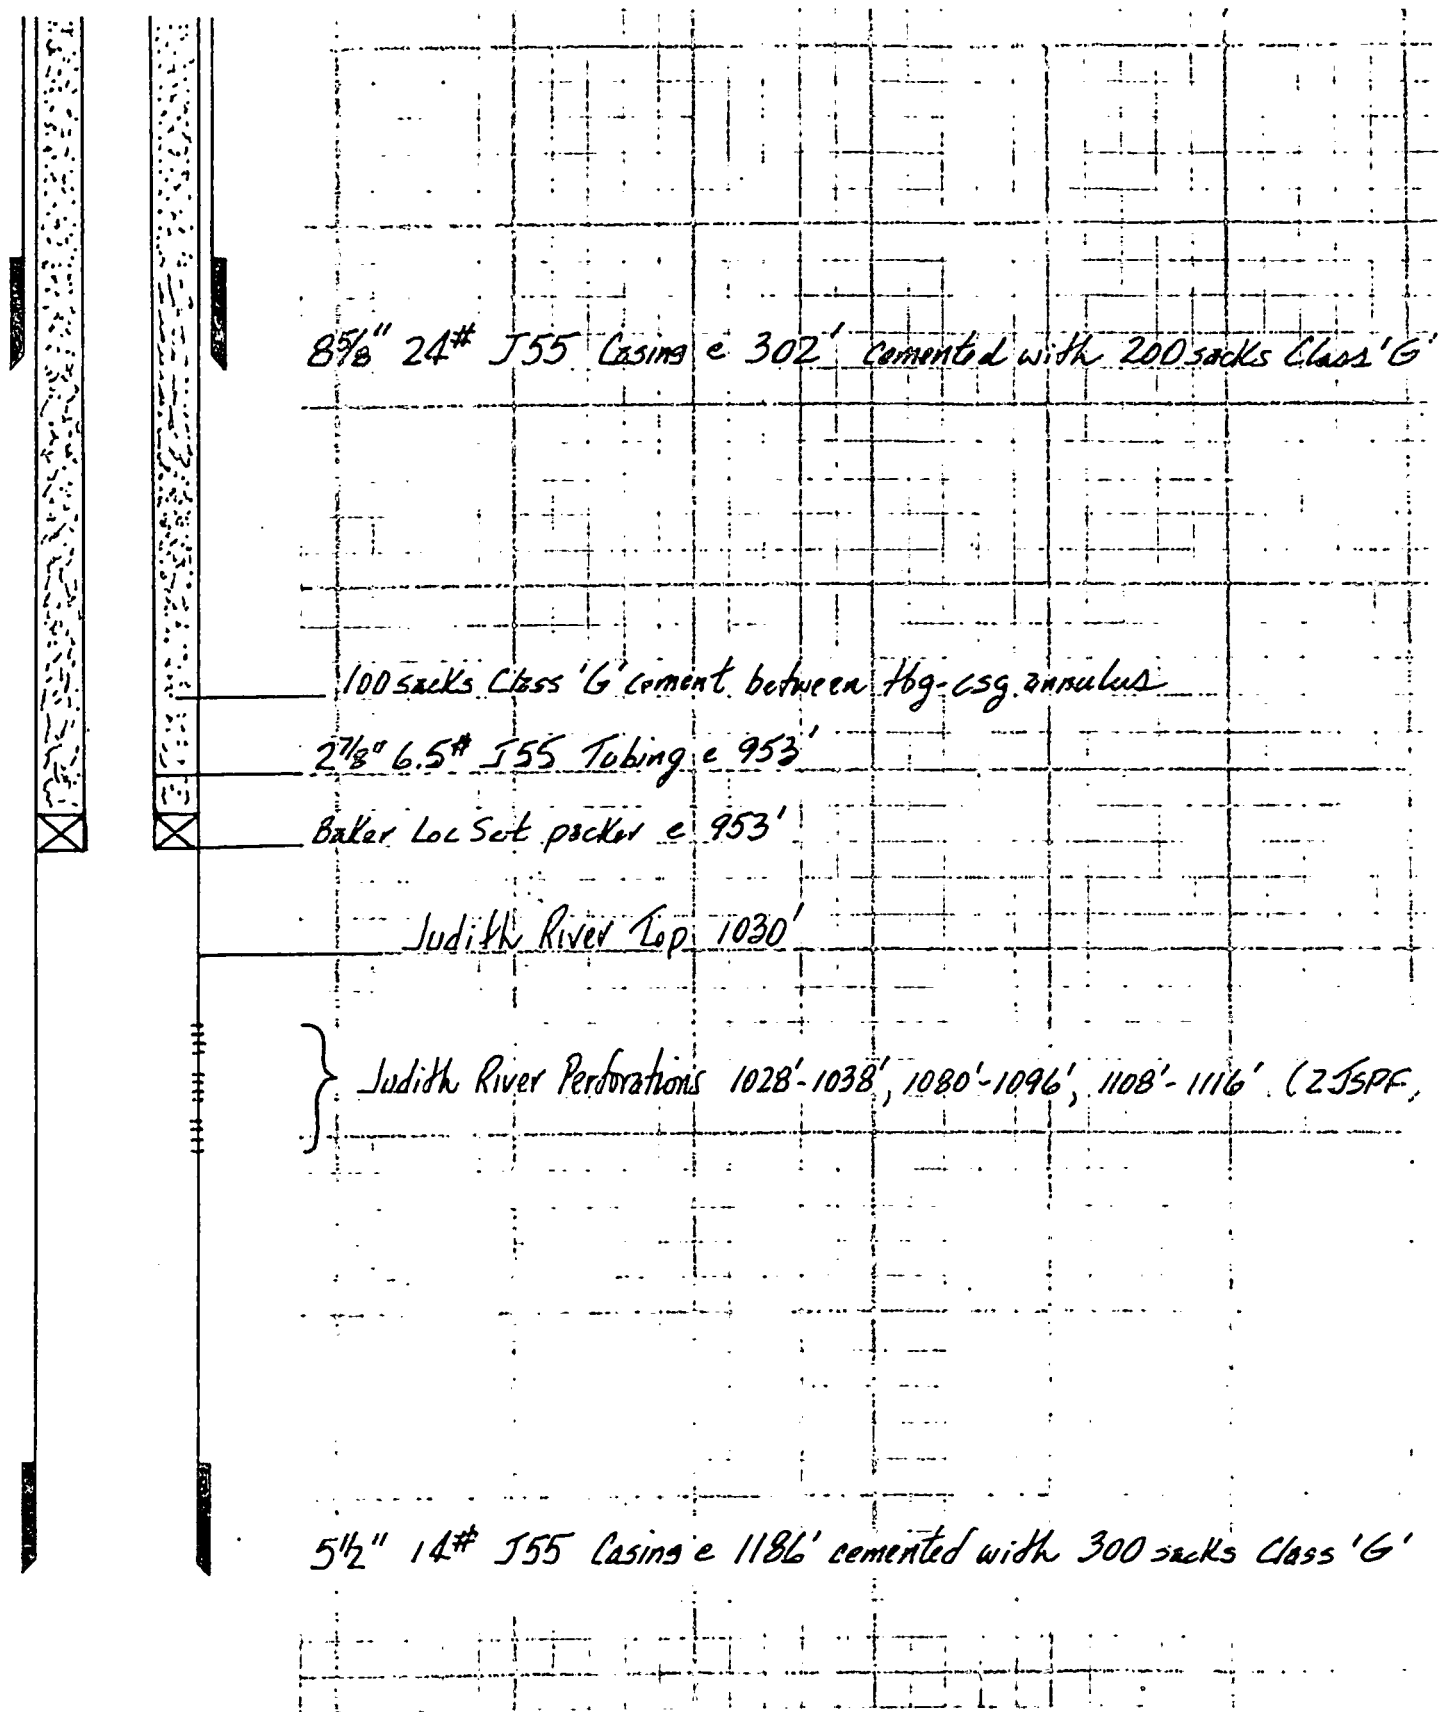 8⅝" 24# J55 Casing @ 302' cemented with 200 sacks Class 'G'
100 sacks Class 'G' cement between tbg-csg annulus
2⅞" 6.5# J55 Tubing @ 953'
Baker Loc Set packer @ 953'
Judith River Top 1030'
Judith River Perforations 1028'-1038', 1080'-1096', 1108'-1116' (2JSPF,
5½" 14# J55 Casing @ 1186' cemented with 300 sacks Class 'G'